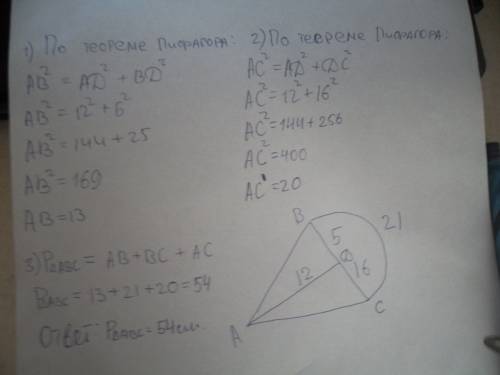 1) По теореме Пифагора:
AB² = AD² + BD²
AB² = 12² + 5²
AB² = 144 + 25
AB² = 169
AB = 13
2) По теореме Пифагора:
AC² = AD² + DC²
AC² = 12² + 16²
AC² = 144 + 256
AC² = 400
AC = 20
3) P△ABC = AB + BC + AC
P△ABC = 13 + 21 + 20 = 54
Ответ: P△ABC = 54 см.
B
5
21
D
12
16
C
A